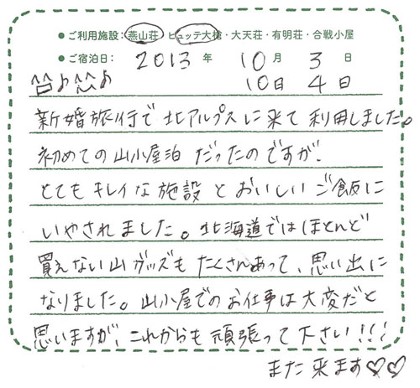 ●ご利用施設：燕山荘・ヒュッテ大槍・大天荘・有明荘・合戦小屋
●ご宿泊日：2013年 10月 3日
10日 4日
新婚旅行で北アルプスに来て利用しました。
初めての山小屋泊だったのですが、
とてもキレイな施設とおいしいご飯に
いやされました。北海道ではほとんど
買えない山グッズもたくさんあって、思い出に
なりました。山小屋でのお仕事は大変だと
思いますが、これからも頑張って下さい！！！
また来ます♡♡